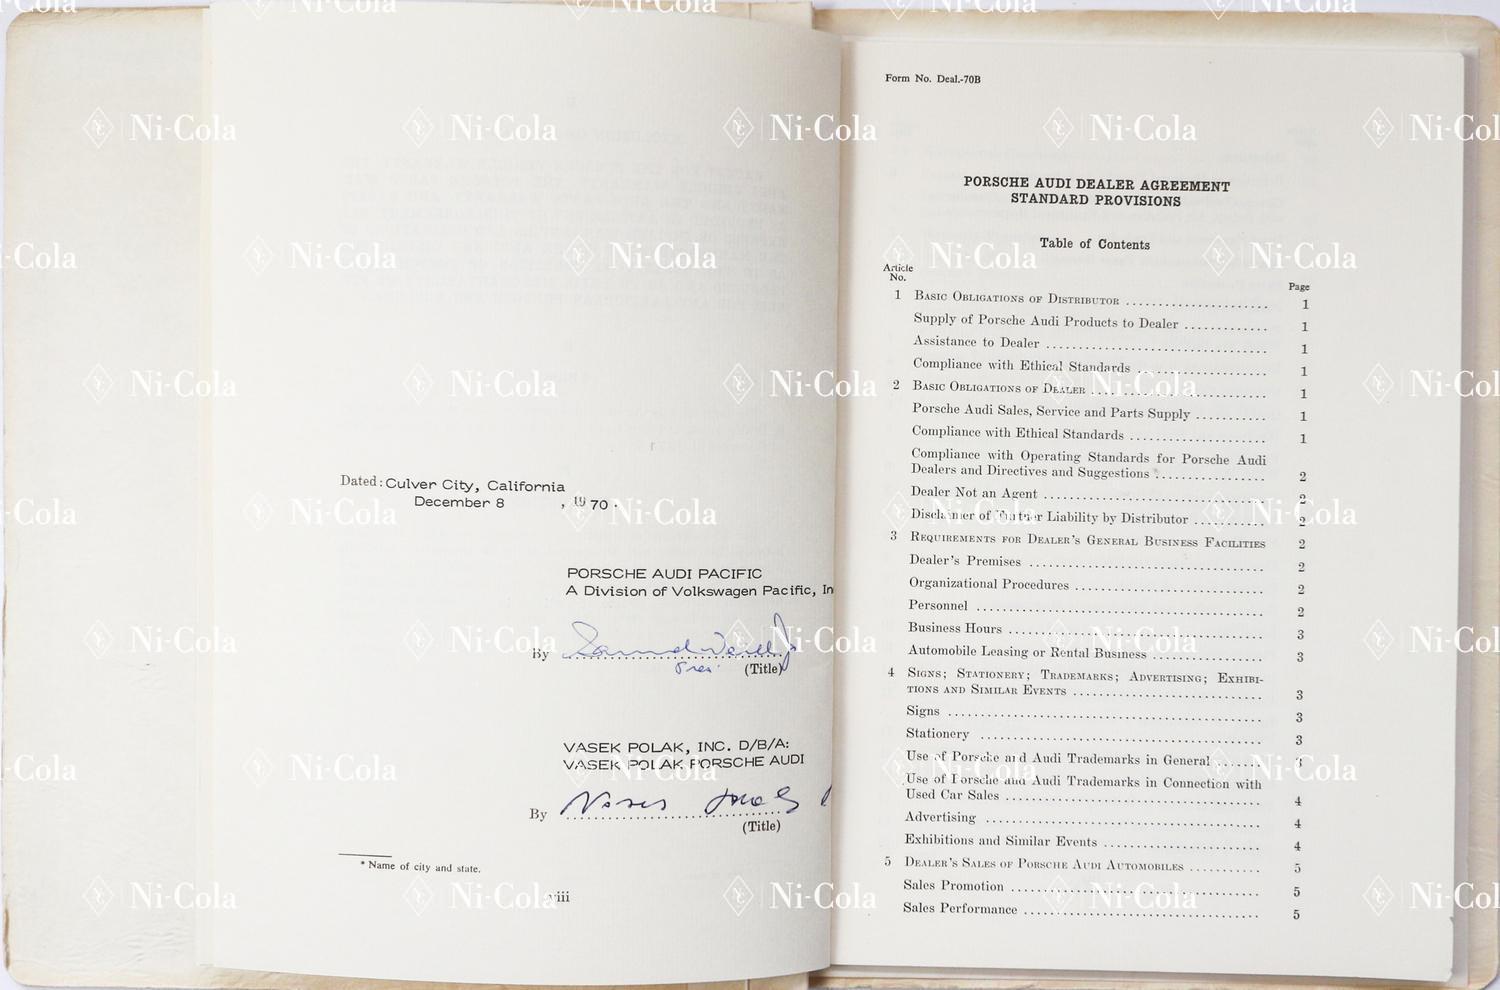 Dated: Culver City, California
December 8, 1970.
PORSCHE AUDI PACIFIC
A Division of Volkswagen Pacific, In
By
Pres. (Title)
VASEK POLAK, INC. D/B/A:
VASEK POLAK PORSCHE AUDI
By Vasek Polak
(Title)
* Name of city and state.
viii
Form No. Deal.-70B
PORSCHE AUDI DEALER AGREEMENT
STANDARD PROVISIONS
Table of Contents
Article
No.
Page
1 BASIC OBLIGATIONS OF DISTRIBUTOR 1
Supply of Porsche Audi Products to Dealer 1
Assistance to Dealer 1
Compliance with Ethical Standards 1
2 BASIC OBLIGATIONS OF DEALER 1
Porsche Audi Sales, Service and Parts Supply 1
Compliance with Ethical Standards 1
Compliance with Operating Standards for Porsche Audi
Dealers and Directives and Suggestions 2
Dealer Not an Agent 2
Disclaimer of Further Liability by Distributor 2
3 REQUIREMENTS FOR DEALER'S GENERAL BUSINESS FACILITIES 2
Dealer's Premises 2
Organizational Procedures 2
Personnel 2
Business Hours 3
Automobile Leasing or Rental Business 3
4 SIGNS; STATIONERY; TRADEMARKS; ADVERTISING; EXHIBI-
TIONS AND SIMILAR EVENTS 3
Signs 3
Stationery 3
Use of Porsche and Audi Trademarks in General 3
Use of Porsche and Audi Trademarks in Connection with
Used Car Sales 4
Advertising 4
Exhibitions and Similar Events 4
5 DEALER'S SALES OF PORSCHE AUDI AUTOMOBILES 5
Sales Promotion 5
Sales Performance 5
Ni-Cola